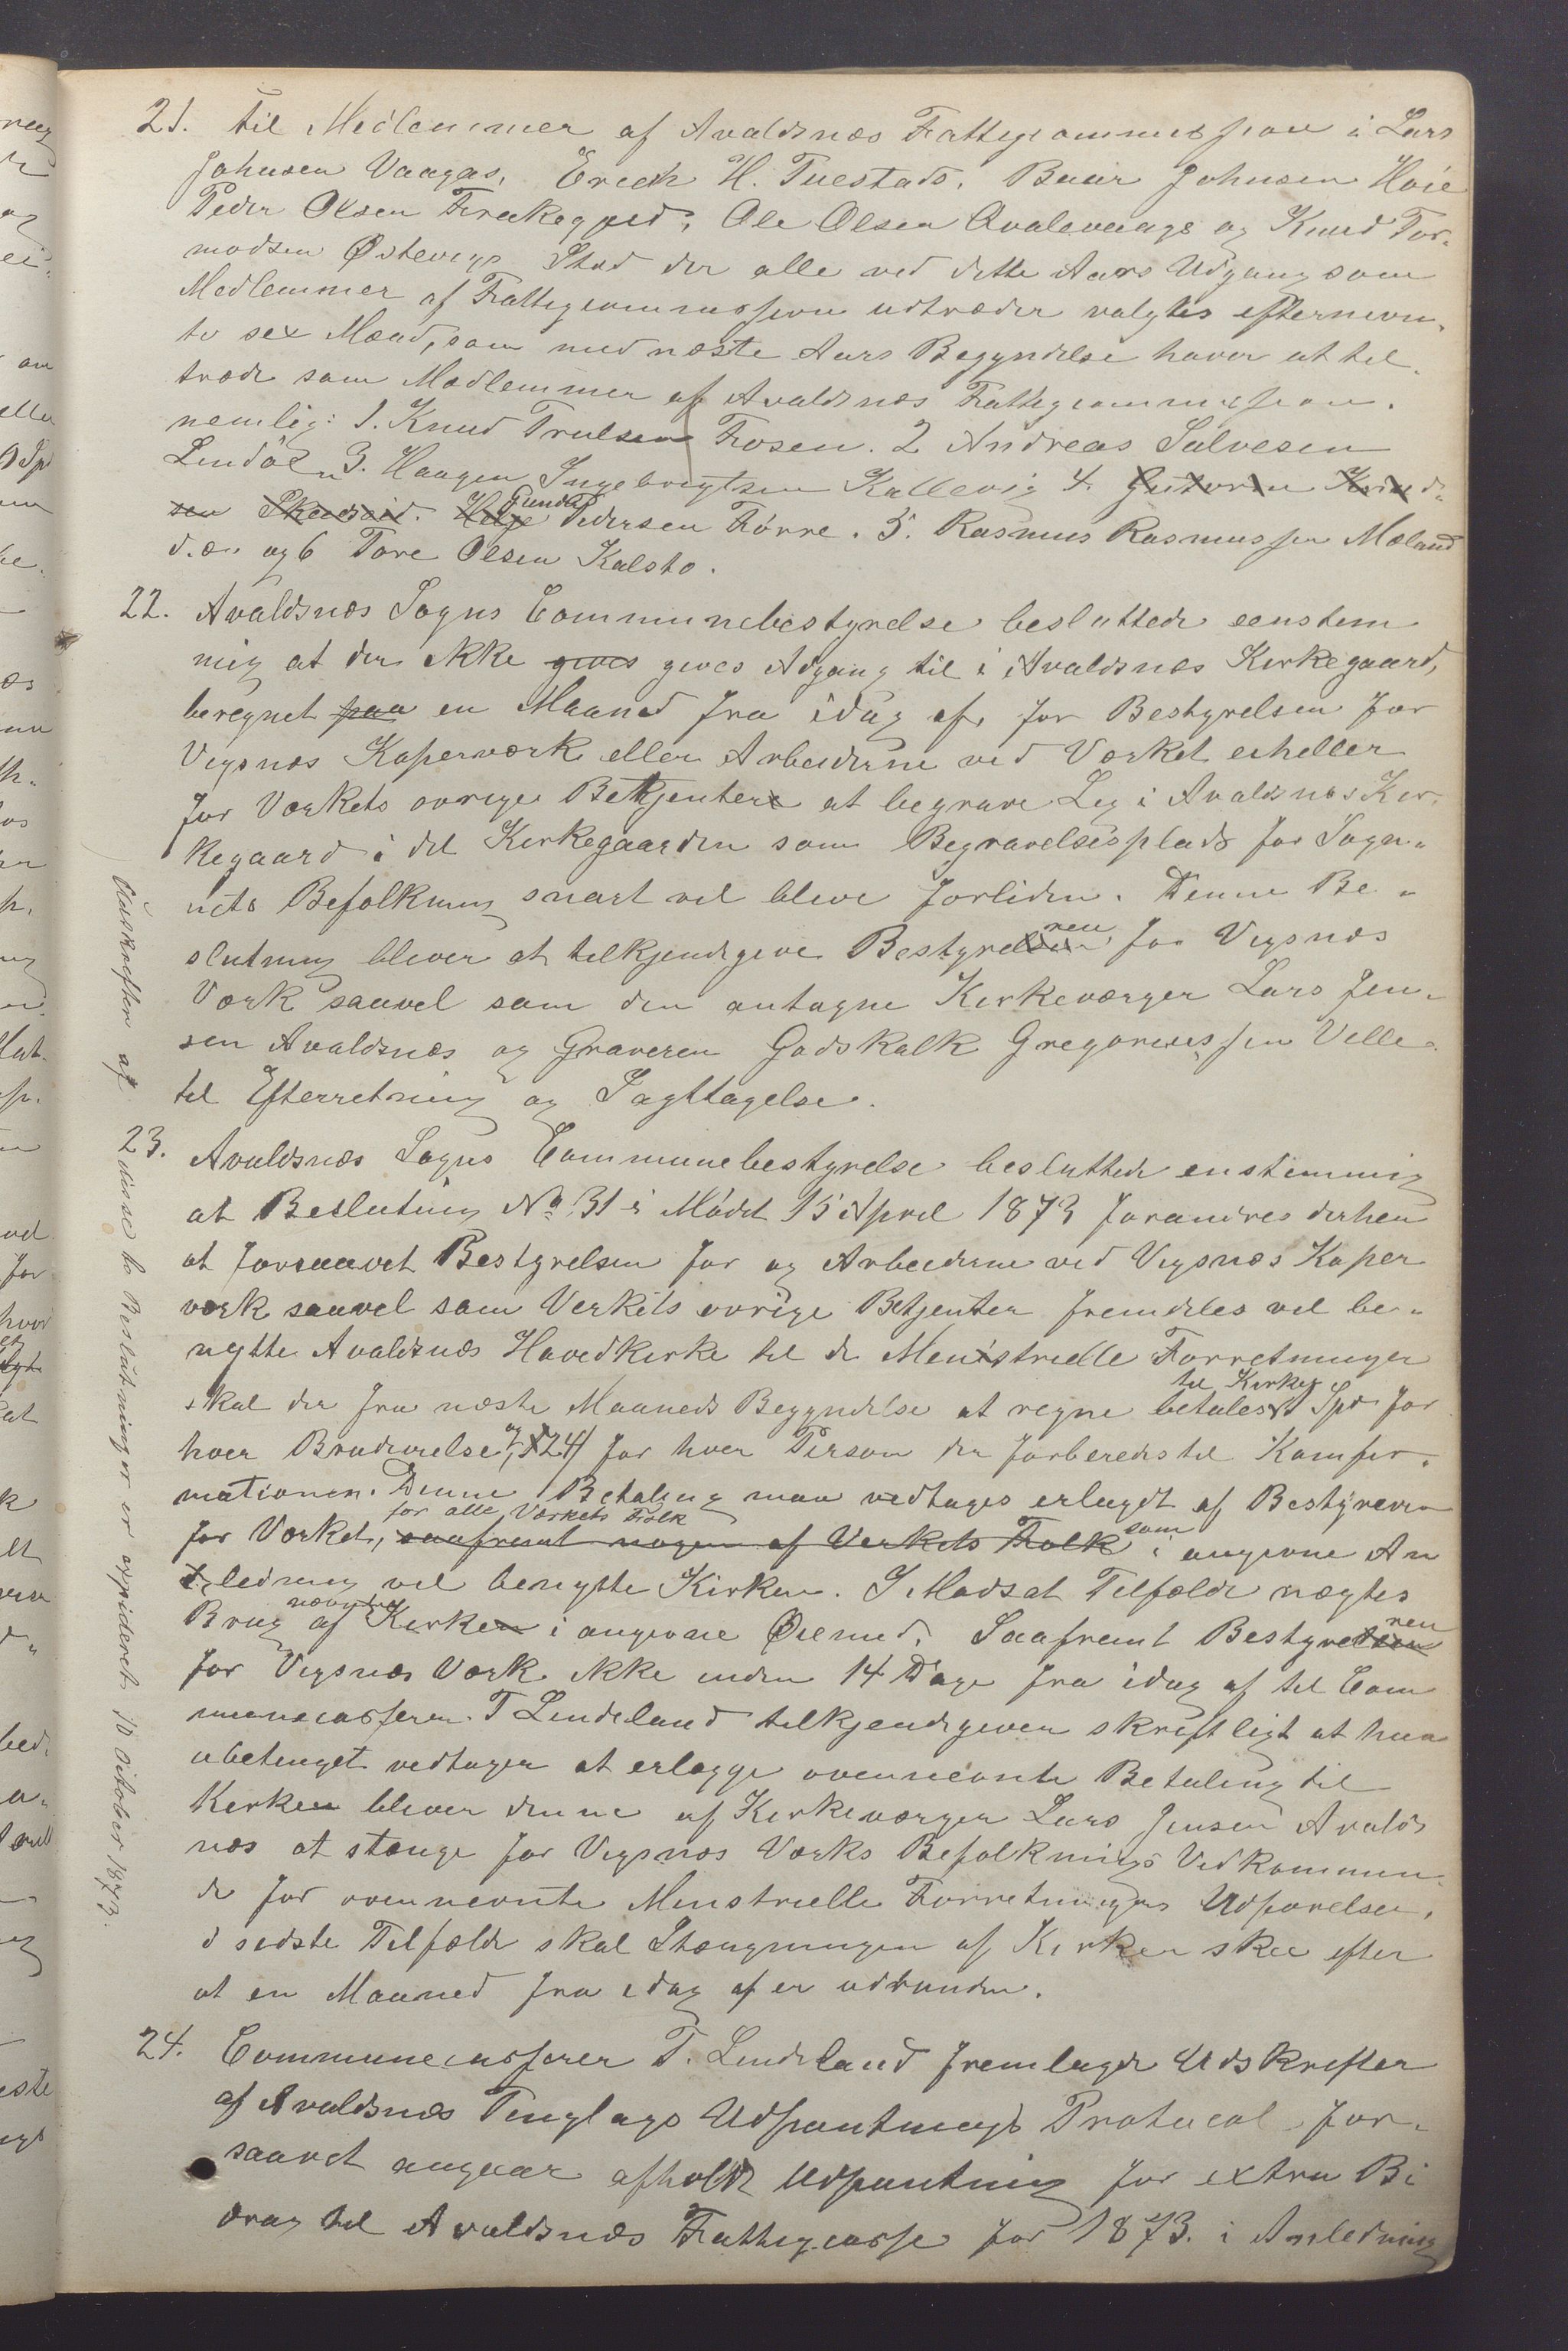 21. Til Medlemmer af Avaldsnæs Fattigcommission i Lars
Johnsen Vaagas, Erich H. Tuestads, Baar Johnsen Høie
Peder Olsen Ole Olsen Qvalevaags og Knud Tor-
modsen Østevigs Sted der alle ved dette Aars Udgang som
Medlemmer af Fattigcommissionen udtræder valgtes efternevn-
te sex Mænd, som med næste Aars Begyndelse haver at til-
træde som Medlemmer af Avaldsnæs Fattigcommission.
nemlig: 1. Knud Trulsen Fosen. 2 Andreas Salvesen
Lindøe, 3. Haagen Ingebrigtsen Kallevig 4. Gutorm Knud-
sen Skeiseid. Helje Gunder Pedersen Førre. 5. Rasmus Rasmussen Mæland
d.æ. og 6 Tore Olsen Kalstø.
22. Avaldsnæs Sogns Communebestyrelse besluttede eenstem
mig at der ikke gives gives Adgang til i Avaldsnæs Kirkegaard,
beregnet paa en Maaned fra idag af, for Bestyrelsen for
Vigsnæs Koperværk eller Arbeiderne ved Værket eiheller
for Værkets øvrige Betjentere at begrave Lig i Avaldsnæs Kir-
kegaard i det Kirkegaarden som Begravelsesplads for Sogn-
nets Befolkning snart vil blive forliden. Denne Be-
slutning bliver at tilkjendegive Bestyrelsen ren for Vigsnæs
Værk saavel som den antagne Kirkeværger Lars Jen-
sen Avaldsnæs og Graveren Godskalk Gregoriussen Velle
til Efterretning og Iagttagelse.
Udskrifter af disse to Beslutninger er expideret 10 October 1873.
23. Avaldsnæs Sogns Communebestyrelse besluttede enstemmig
at Beslutning No 31 i Mødet 15 April 1873 forandres derhen
at forsaavet Bestyrelsen for og Arbeiderne ved Vigsnæs Koper
værk saavel som Verkets øvrige Betjenter fremdeles vil be-
nytte Avaldsnæs Hovedkirke til de Menistrielle Forretninger
skal der fra næste Maaneds Begyndelse at regne betales til Kirken 1 Spd for
hver Brudevielse, og 24 β for hver Person der forberedes til Komfir-
mationen. Denne Betaling maa vedtages erlagdt af Bestyreren
for Værket, for alle Værkets Folk saafremt nogen af Verkets Folk som i angivne An
ledning vil benytte Kirken. I Modsat Tilfælde nægtes
Brug af nævnte Kirken i angivne Øiemed. Saafremt Bestyrelsen ren
for Vigsnæs Værk ikke inden 14 Dage fra idag af til Com
munecasserer T Lindeland tilkjendegiver skriftligt at han
ubetinget vedtager at erlægge ovennevnte Betaling til
Kirken bliver denne af Kirkeværger Lars Jensen Avalds
næs at stænge for Vigsnæs Værks Befolknings Vedkommen-
de for ovennevnte Minstrielle Forretningers Udførelse,
i sidste Tilfælde skal Stængningen af Kirken skee efter
at en Maaned fra idag af er udrunden.
24. Communecasserer T. Lindeland fremlagde Udskrifter
af Avaldsnæs Tinglags Udpantnings Protocol for-
saavet angaar afholdt Udpantning for extra Bi
drag til Avaldsnæs Fattigcasse for 1873. i Anledning